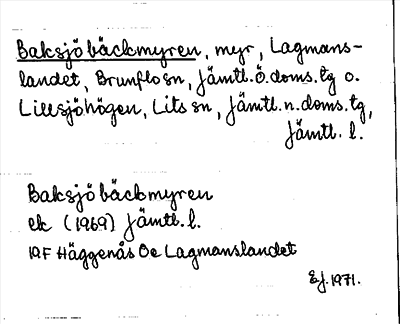 Baksjöbäckmyren, myr, Lagmans-
landet, Brunflo sn, Jämtl. ö. doms. tg o.
Lillsjöhögen, Lits sn, Jämtl. n. doms. tg,
Jämtl. l.
Baksjöbäckmyren
ek (1969) Jämtl. l.
19F Häggenås Öe Lagmanslandet
EJ. 1971.